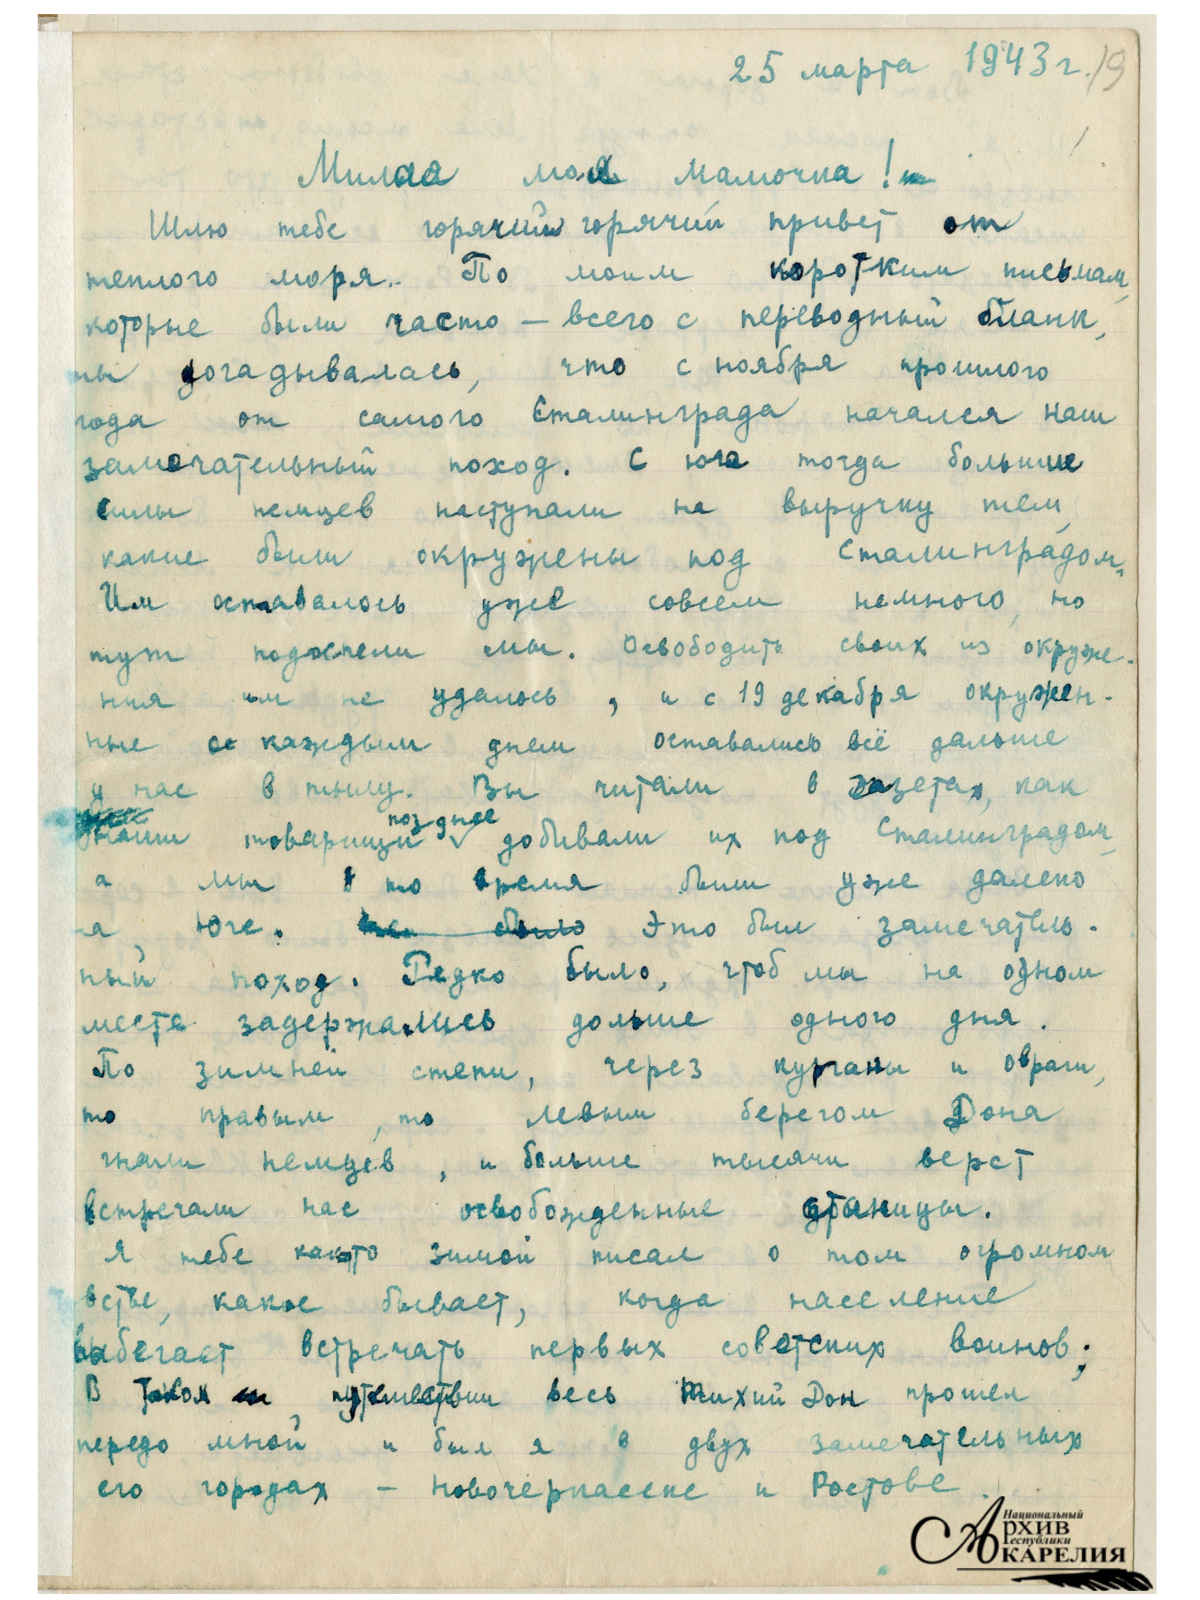 25 марта 1943 г. 19
Милая моя мамочка!
Шлю тебе горячий горячий привет от
теплого моря. По моим коротким письмам,
которые были часто – всего с переводный бланк,
ты догадывалась, что с ноября прошлого
года от самого Сталинграда начался наш
замечательный поход. С юга тогда большие
силы немцев наступали на выручку тем,
какие были окружены под Сталинградом.
Им оставалось уже совсем немного, но
тут подоспели мы. Освободить своих из окруже-
ния им не удалось, и с 19 декабря окружен-
ные с каждым днем оставались всё дальше
у нас в тылу. Вы читали в газетах, как
наши товарищи позднее добивали их под Сталинградом,
а мы в то время были уже далеко
на Юге. Это был замечатель-
ный поход. Редко было, чтоб мы на одном
месте задержались дольше одного дня.
По зимней степи, через курганы и овраги,
то правым, то левым берегом Дона
гнали немцев, и больше тысячи верст
встречали нас освобожденные станицы.
Я тебе как-то зимой писал о том огромном
какое бывает, когда население
выбегает встречать первых советских воинов;
В таком путешествии весь Тихий Дон прошел
передо мной, и был я в двух замечательных
его городах – Новочеркасске и Ростове.
Национальный
Архив
Республики
Карелия